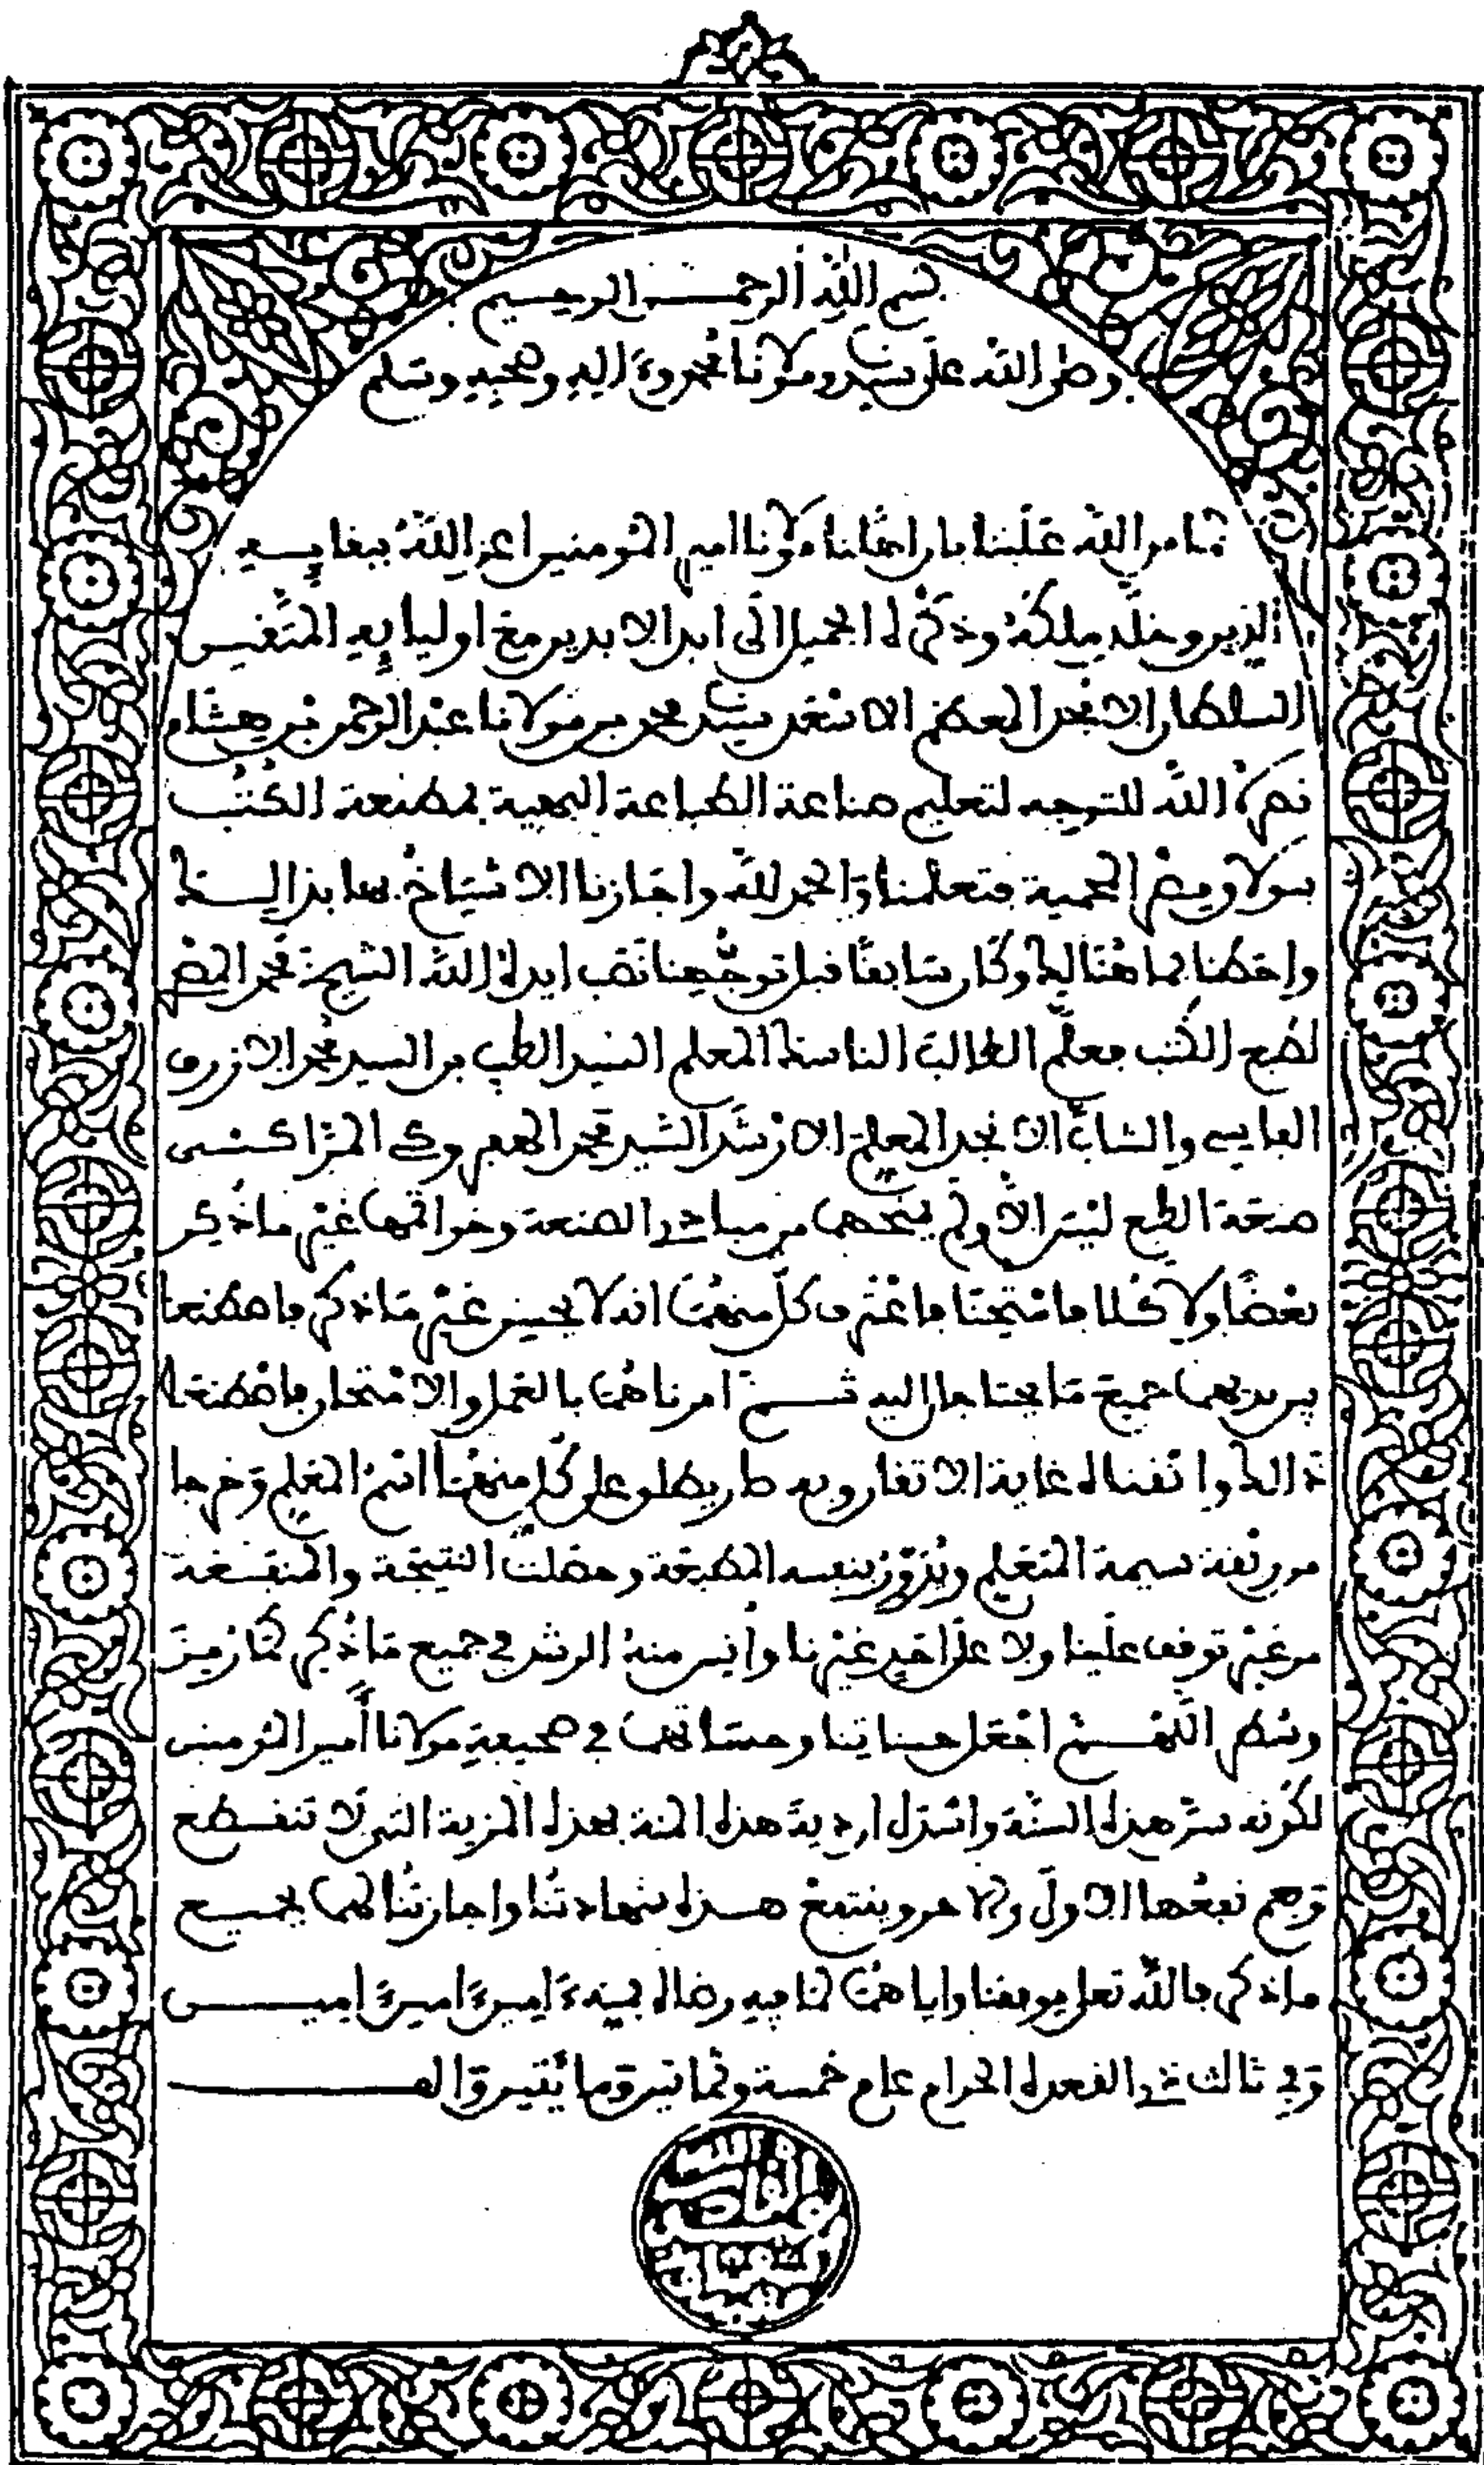 بسم الله الرحمن الرحيم
وصلى الله على سيدنا ومولانا محمد وءاله وصحبه وسلم
لما من الله علينا بان اهلنا مولانا امير المؤمنين اعز الله ببقايه
الدين وخلد ملكه وذكره الجميل الى ابد الابدين مع اوليايه المتقين
السلطان الافخر المعظم الاسعد سيدنا محمد بن مولانا عبد الرحمن بن هشام
نصره الله للتوجه لتعليم صناعة الطباعة البهية بمصنعة الكتب
ببولاق مصر المحمية فتعلمنا والحمد لله واجازنا الاشياخ بها بذالك
واحطنا بما هنالك وكان سابقا قبل توجهنا نصب ايده الله الشيخ محمد المصري
لطبع الكتب فعلم الطالب الناسك المعلم السيد الطيب بن السيد محمد الازرق
الفاسي والشاب الانجد المعلم الارشد السيد محمد الهفروكي المراكشي
صنعة الطبع ليس الا ولم يمنحهما من مبادي الصنعة وخواتمها غير ما ذكر
بعضا ولا كلا فامتحنا فاعترف كل منهما انه لا يحسن غير ما ذكر فاصطنعنا
بين يديهما جميع ما يحتاجان اليه ثم امرناهما بالعمل والامتحان فاصطنعا
ذالك واتقناه غاية الاتقان وبه صار يطلق على كل منهما اسم المعلم وخرجا
من ربقة سيمة المتعلم وبروز بنفسه المطبعة وحصلت النتيجة والمنفعة
من غير توقف علينا ولا على احد غيرنا وأنس منه الرشد في جميع ما ذكر كما رمز
وسطر اللهم اجعل حسناتنا وحسناتهما في صحيفة مولانا أمير المؤمنين
لكونه سن هذه السنة واسدل اردية هذه المنة بهذه المزية التي لا تنقطع
وبهم نفعها الاول والاخر وينتفع هذه شهادتنا واجازتنا لهما بجميع
ما ذكر فالله تعلى يوفقنا واياهما لما فيه رضاه بمنه ءامين ءامين ءاميـن
وفي ثالث ذي القعدة الحرام عام خمسة وثمانين ومائتين والف